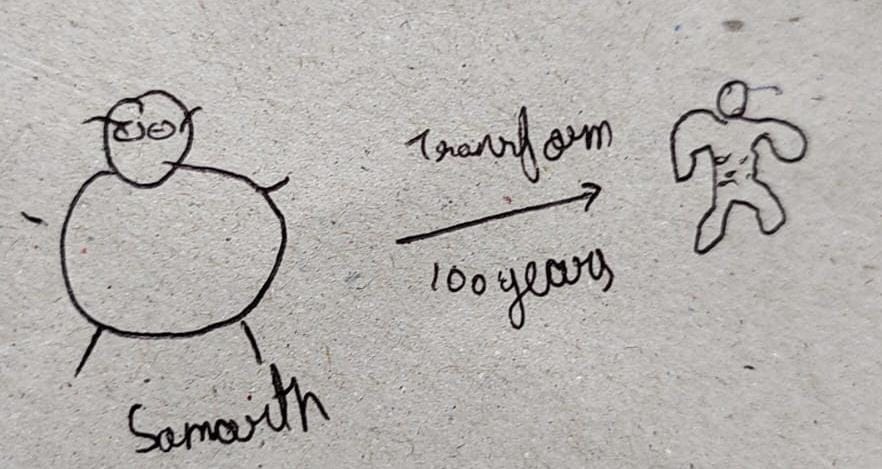 Transform
100 years
Samarth